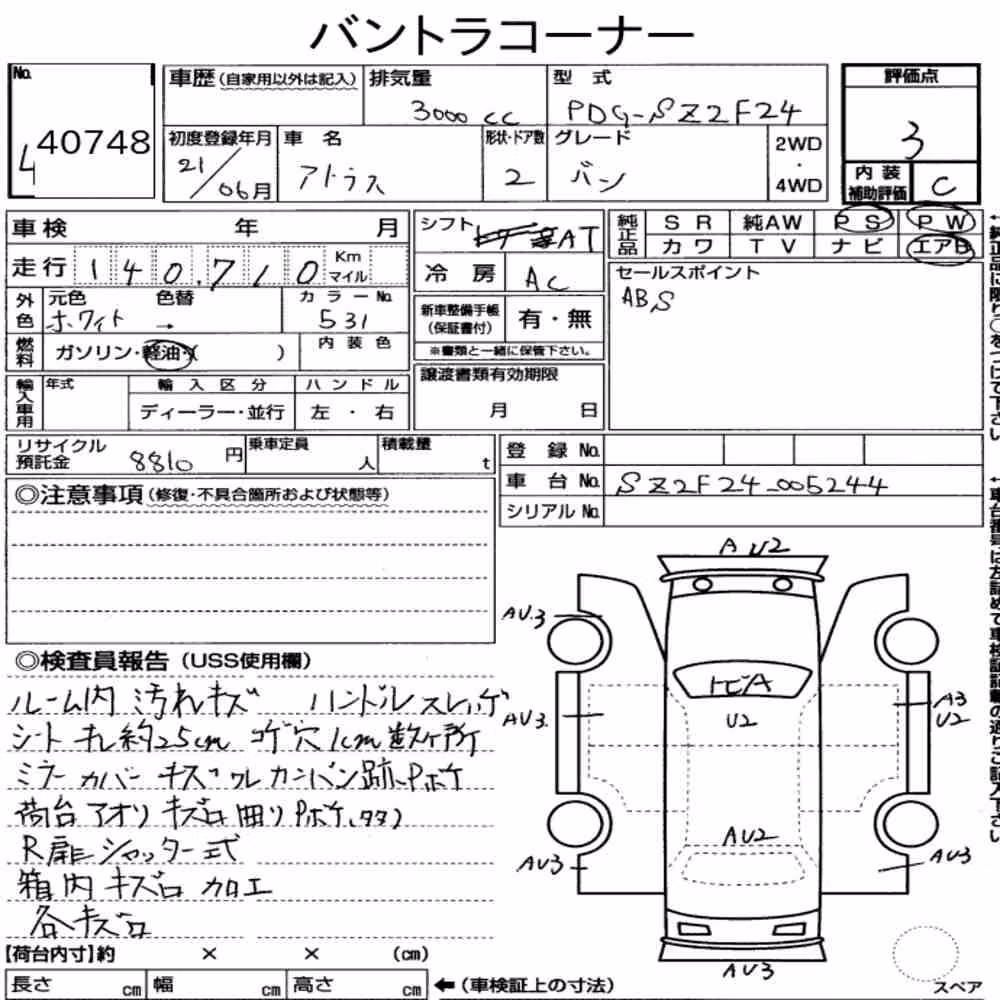 バントラコーナー
No. 40748
4
車歴(自家用以外は記入) 排気量 3000 cc 型式 PDG-SZ2F24
評価点 3
内装補助評価 C
初度登録年月 21/06月 車名 アトラス 形状・ドア数 2 グレード バン 2WD・4WD
車検 年 月
走行 140,710 Km マイル
外色 元色 ホワイト 色替 → カラーNo. 531
燃料 ガソリン・軽油・( ) 内装色
輸入車用 年式 輸入区分 ディーラー・並行 ハンドル 左・右
シフト AT
冷房 AC
新車整備手帳(保証書付) 有・無
※書類と一緒に保管下さい。
譲渡書類有効期限 月 日
純正品 SR 純AW PS PW
カワ TV ナビ エアB
セールスポイント
ABS
←純正品に限り○をつけて下さい
リサイクル預託金 8810円 乗車定員 人 積載量 t
登録No.
車台No. SZ2F24-005244
シリアルNo.
◎注意事項(修復・不具合箇所および状態等)
◎検査員報告(USS使用欄)
ルーム内 汚れキズ ハンドルスレハゲ
シート キレ約25cm コゲ穴1cm数ヶ所
ミラーカバー キズワレ カンバン跡、Pボケ
荷台アオリ キズ凹 Pボケ、タタミ
R扉シャッター式
箱内キズ凹 加工
各キズ凹
【荷台内寸】約 × × (cm)
長さ cm 幅 cm 高さ cm ←(車検証上の寸法)
A U2
AU3
AU3
トビA
U2
A3
U2
AU2
AU3
AU3
AU3
スペア